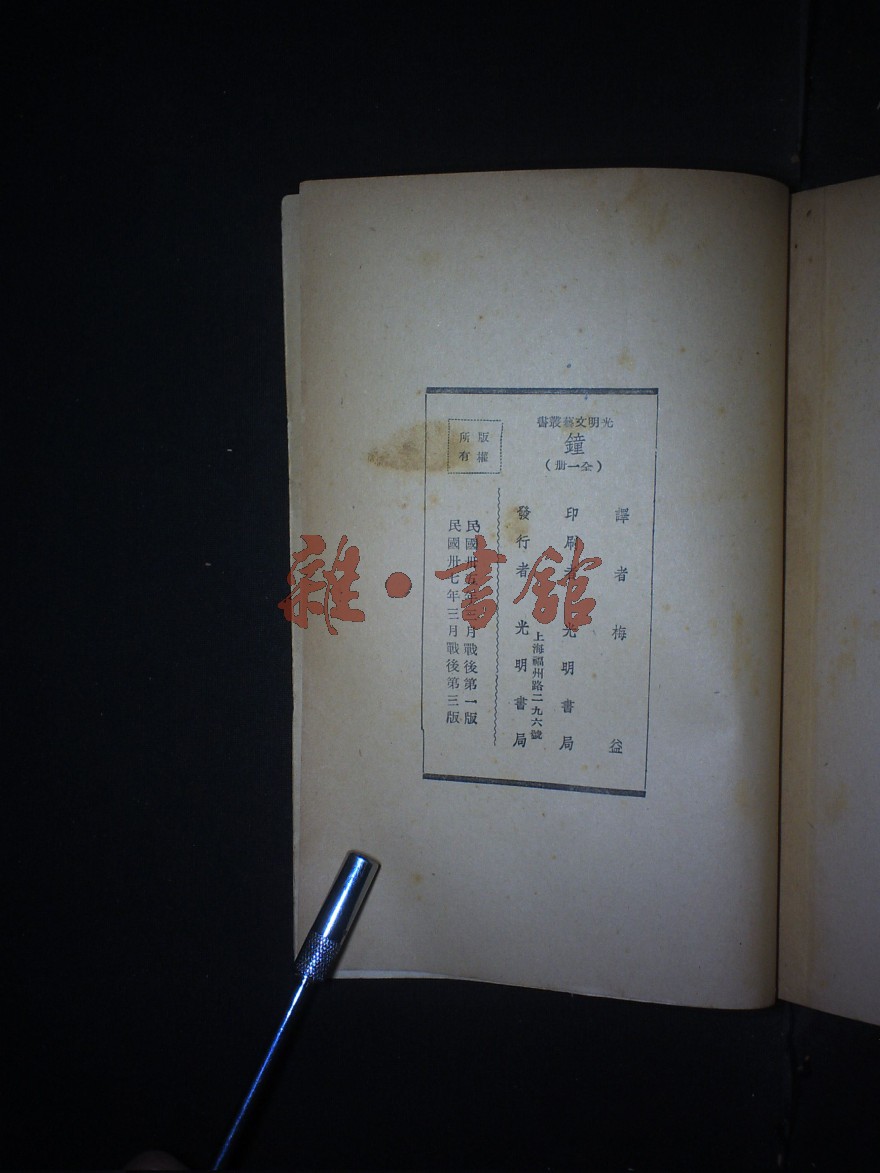 光明文藝叢書
鐘
(全一册)
版權所有
譯者 梅益
印刷者 光明書局
上海福州路二九六號
發行者 光明書局
民國卅 年 月戰後第一版
民國卅七年三月戰後第三版
雜·書館